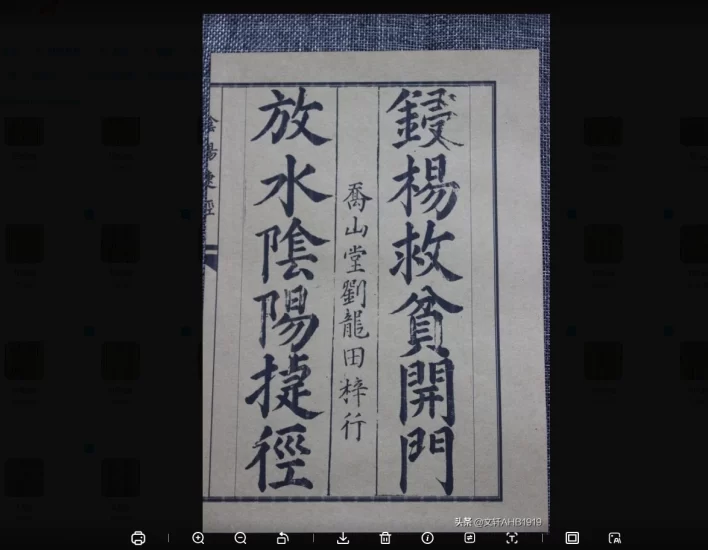 鋟楊救貧開門
喬山堂劉龍田梓行
放水陰陽捷徑
陰陽捷徑
头条 @文轩AHB1919